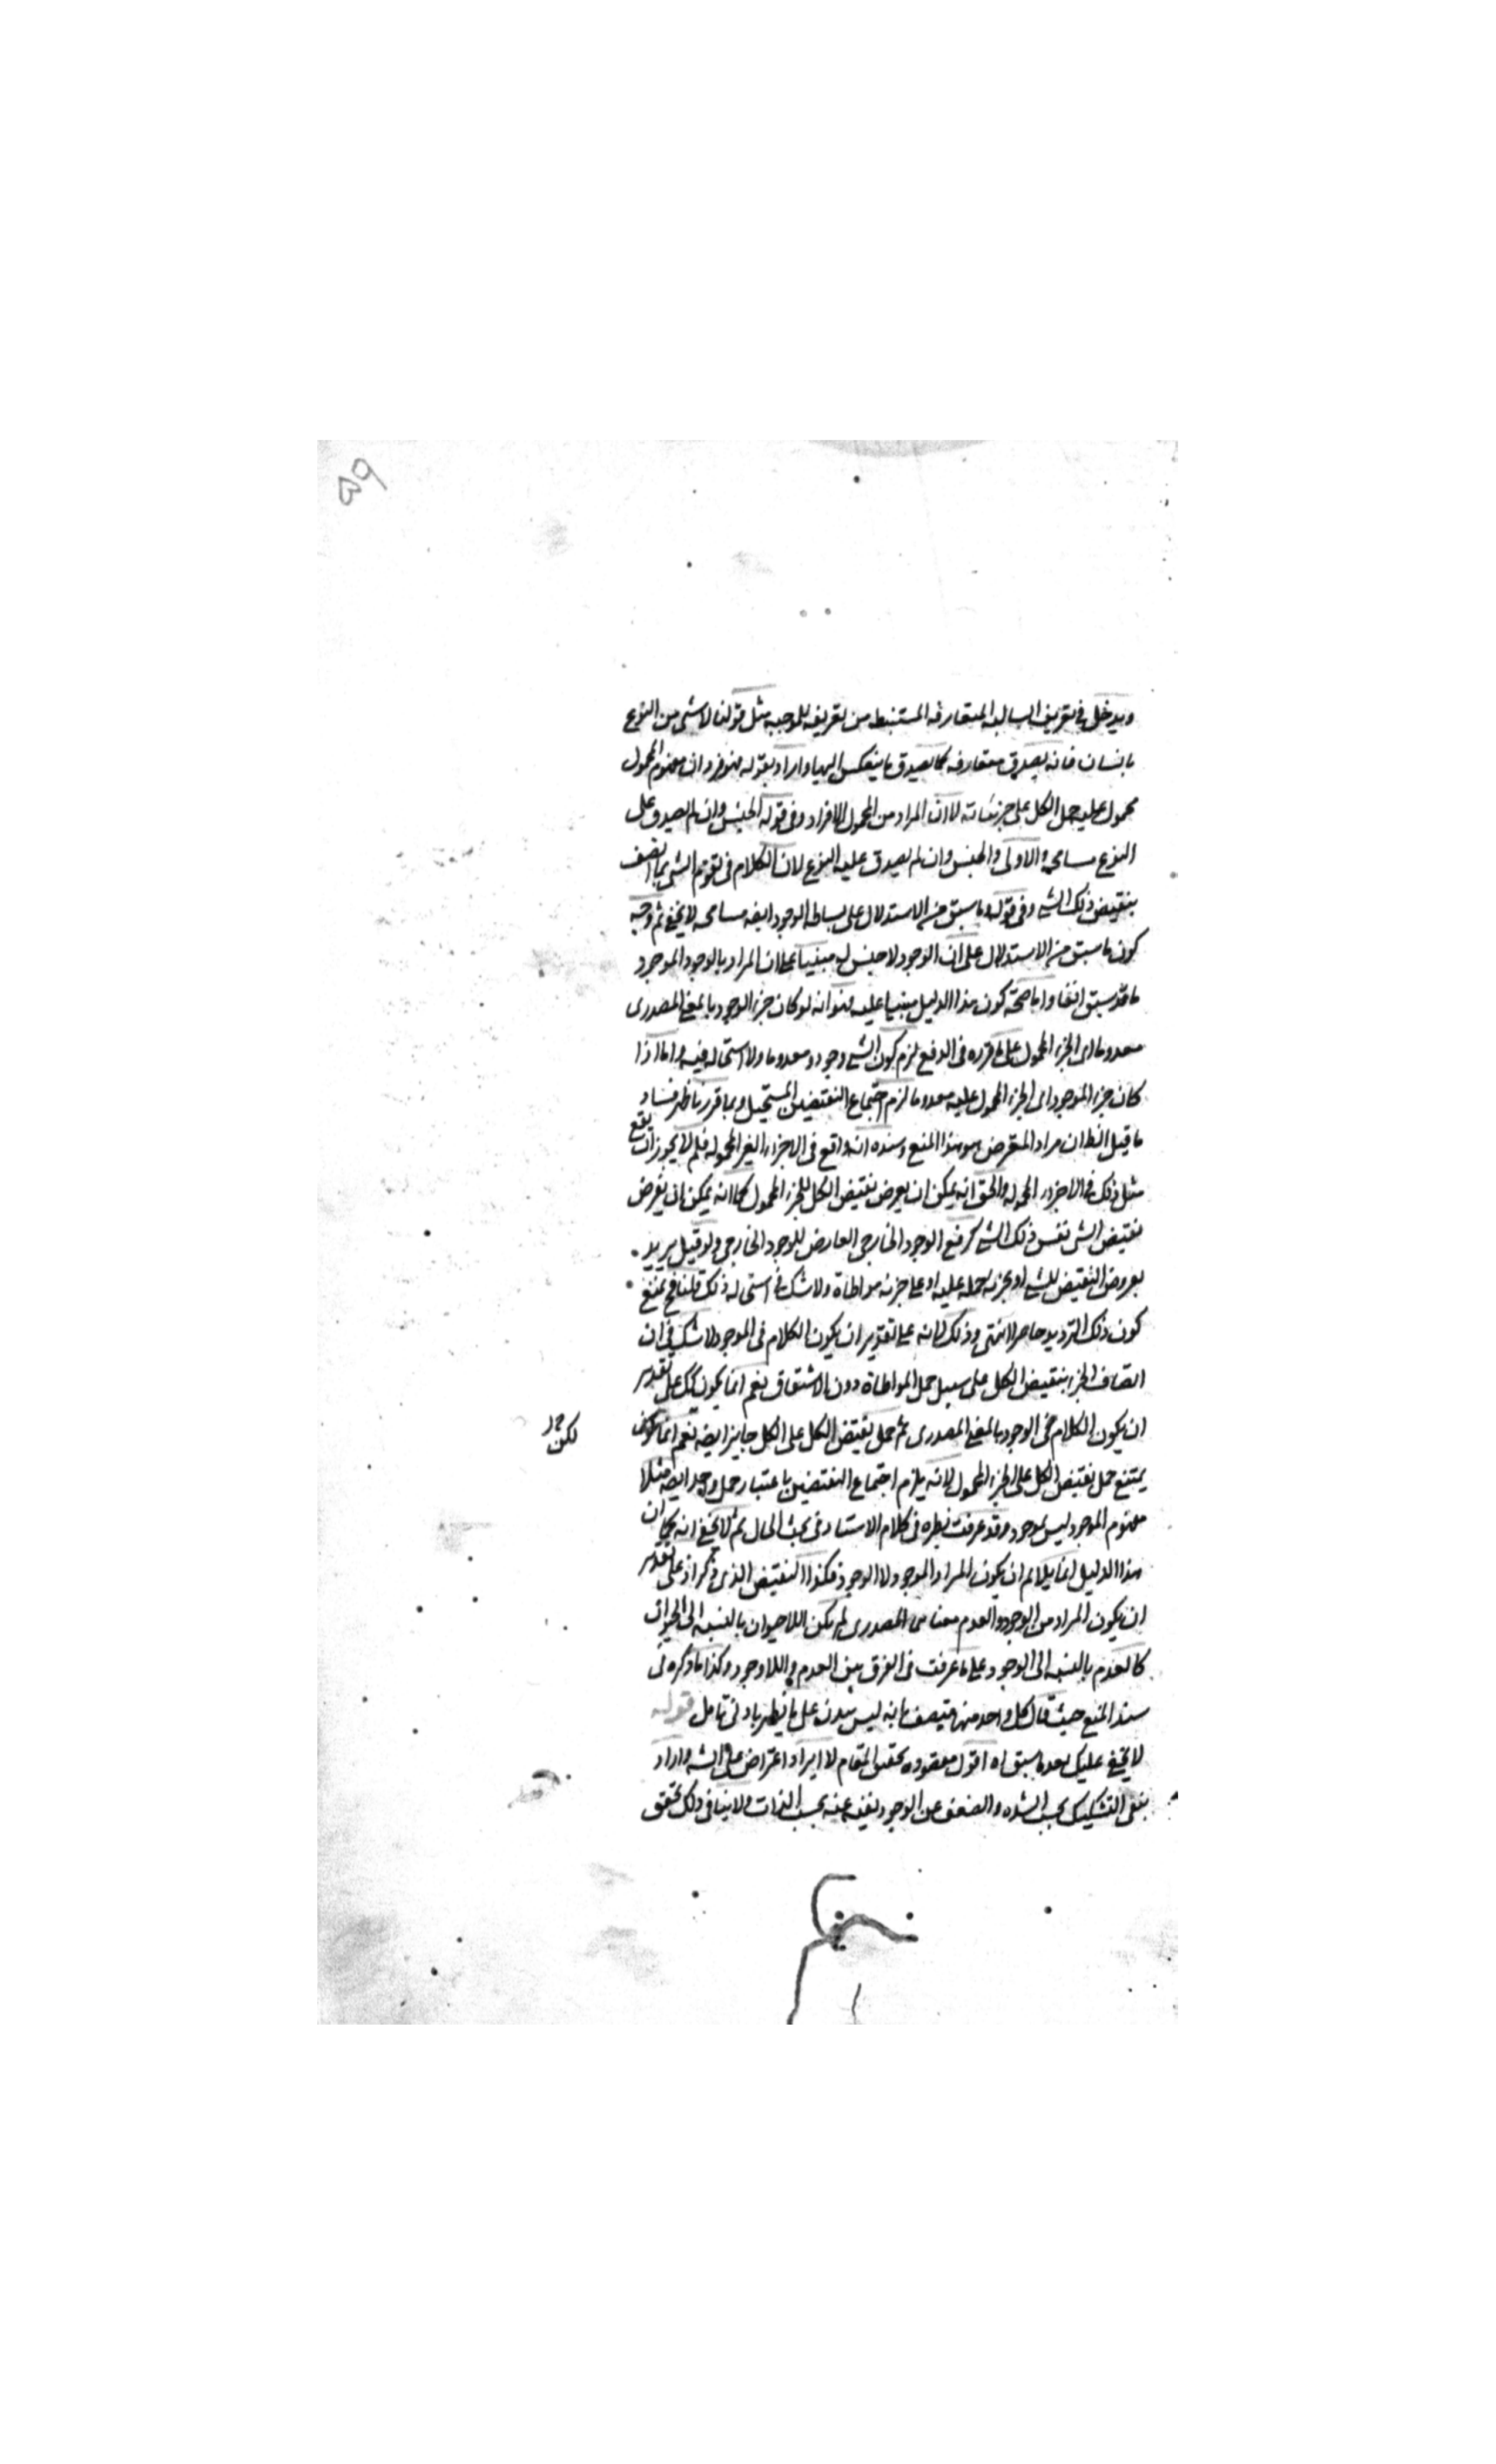 ويدخل في تعريف السالبة المتعارفة المستنبط من تعريفه للموجبة مثل قولنا لا شئ من النوع
بانسان فانه يصدق متعارفه كما يصدق ما ينعكس اليها واراد بقوله هو فرد ان مفهوم المحمول
محمول عليه حمل الكل على جزئياته لا ان المراد من المحمول الافراد وفى قوله الجنس وان لم يصدق على
النوع مسامحه والاولى والجنس وان لم يصدق عليه النوع لان الكلام فى تقوم الشئ بما اتصف
بنقيض ذلك الشئ وفى قوله وما سبق من الاستدلال على بساطه الوجود ايضه مسامحه لا يخفى ثم وجه
كون ما سبق من الاستدلال على ان الوجود لا جنس له مبنيا على ان المراد بالوجود الموجود
ما قد سبق انفا واما صحة كون هذا الدليل مبنيا عليه فهو انه لو كان جزء الوجود بالمعنى المصدرى
معدوما اى الجزء المحمول على ما قرره فى الدفع لزم كون الشئ وجودا ومعدوما ولا استحاله فيه واما اذا
كان جزء الموجود اى الجزء المحمول عليه معدوما لزم اجتماع النقيضين المستحيل وبما قررنا ظهر فساد
ما قيل الظ ان مراد المعترض هو هذا المنع وسنده انه واقع فى الاجزاء الغير المحموله فلم لا يجوز ان يقع
مثل ذلك فى الاجزاء المحموله والحق انه يمكن ان يعرض نقيض الكل للجزء المحمول كما انه يمكن ان يعرض
نقيض الشئ نفس ذلك الشئ كرفع الوجود الخارجى العارض للوجود الخارجى ولو قيل يريد
بعروض النقيض للشئ او لجزئه حمله عليه او على جزئه مواطاة ولا شك فى استحاله ذلك قلنا فح نمنع
كون ذلك الترديد حاصرا انتهى وذلك لانه على تقدير ان يكون الكلام فى الموجود لا شك فى ان
اتصاف الجزء بنقيض الكل على سبيل حمل المواطاة دون الاشتقاق نعم انما يكون كك على تقدير
ان يكون الكلام فى الوجود بالمعنى المصدرى ثم حمل نقيض الكل على الكل جايز ايضه نعم انما
لكن
يمتنع حمل نقيض الكل على الجزء المحمول لانه يلزم اجتماع النقيضين باعتبار حمل واحد ايضه مثلا
مفهوم الموجود ليس بموجود وقد عرفت نظيره فى كلام الاستاد فى بحث الحال ثم لا يخفى انه كما ان
هذا الدليل انما يلائم ان يكون المراد الموجود لا الوجود فكذا النقيض الذى ذكر اذ على تقدير
ان يكون المراد من الوجود والعدم معناهما المصدرى لم يكن اللاحيوان بالنسبه الى الحيوان
كالعدم بالنسبه الى الوجود على ما عرفت فى الفرق بين العدم واللاوجود وكذا ما ذكره فى
سند المنع حيث قال كل واحد منها متصف بانه ليس على ما يظهر بادنى تامل قوله
لا يخفى عليك بعد ما سبق اه اقول مقصوده تحقيق المقام لا ايراد اعتراض على الش واراد
بنفى التشكيك بحسب الشده والضعف عن الوجود نفيه عنه بحسب الذات ولا ينافى ذلك تحقق